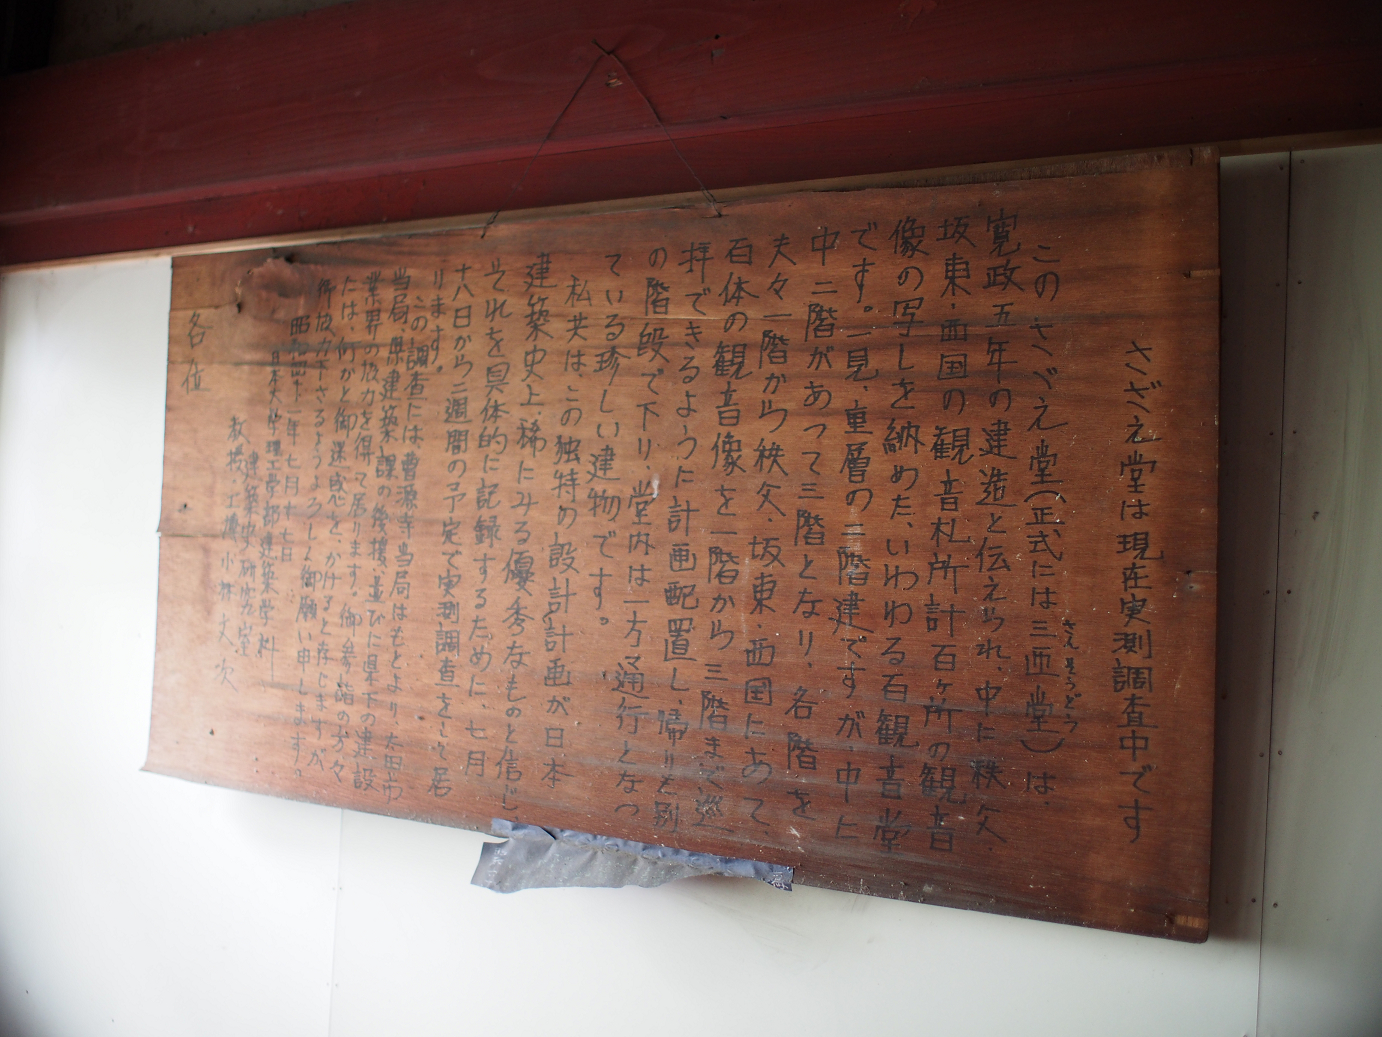 さざえ堂は現在実測調査中です
このさざえ堂(正式には三匝堂)は、
さんそうどう
寛政五年の建造と伝えられ、中に秩父
坂東・西国の観音札所計百ヶ所の観音
像の写しを納めた、いわゆる百観音堂
です。一見、重層の二階建ですが、中に
中二階があって三階となり、各階を
夫々一階から秩父、坂東、西国にあて、
百体の観音像を一階から三階まで巡
拝できるように計画配置し、帰りも別
の階段で下り、堂内は一方通行となっ
ている珍しい建物です。
私共は、この独特の設計計画が日本
建築史上、稀にみる優秀なものと信じ
それを具体的に記録するために、七月
十八日から二週間の予定で実測調査をして居
ります。
この調査には曹源寺当局はもとより、太田市
当局・県建築課の後援、並びに県下の建設
業界の協力を得て居ります。御参詣の方々
には、何かと御迷惑を、かけると存じますが、
御協力下さるようよろしく御願い申します。
昭和四十一年七月十八日
日本大学理工学部建築学科
建築史研究室
教授・工博 小林文次
各位